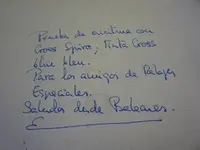 Prueba de escritura con
Cross Spire, Tinta Cross
blue bleu.
Para los amigos de Relojes
Especiales.
Saludos desde Baleares.